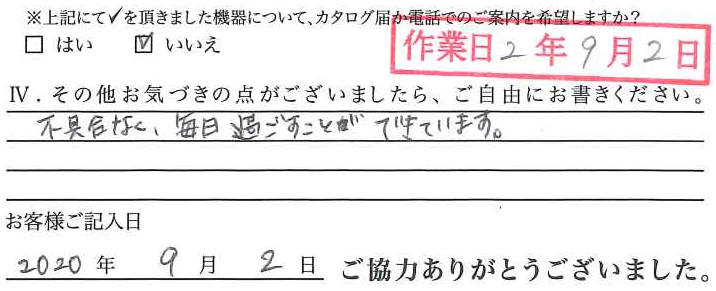 ※上記にて✓を頂きました機器について、カタログ届か電話でのご案内を希望しますか？
□ はい ☑ いいえ
作業日 2 年 9 月 2 日
Ⅳ．その他お気づきの点がございましたら、ご自由にお書きください。
不具合なく、毎日過ごすことができています。
お客様ご記入日
2020 年 9 月 2 日 ご協力ありがとうございました。